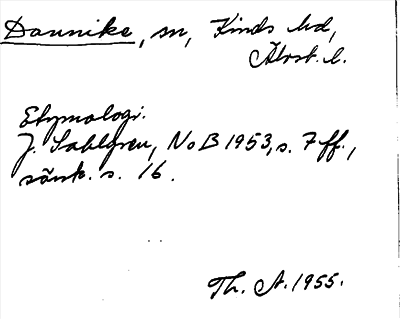 Dannike, sn, Kinds hd,
Älvsb. l.
Etymologi.
J. Sahlgren, NoB 1953, s. 7 ff.,
särsk. s. 16.
Th. A. 1955.